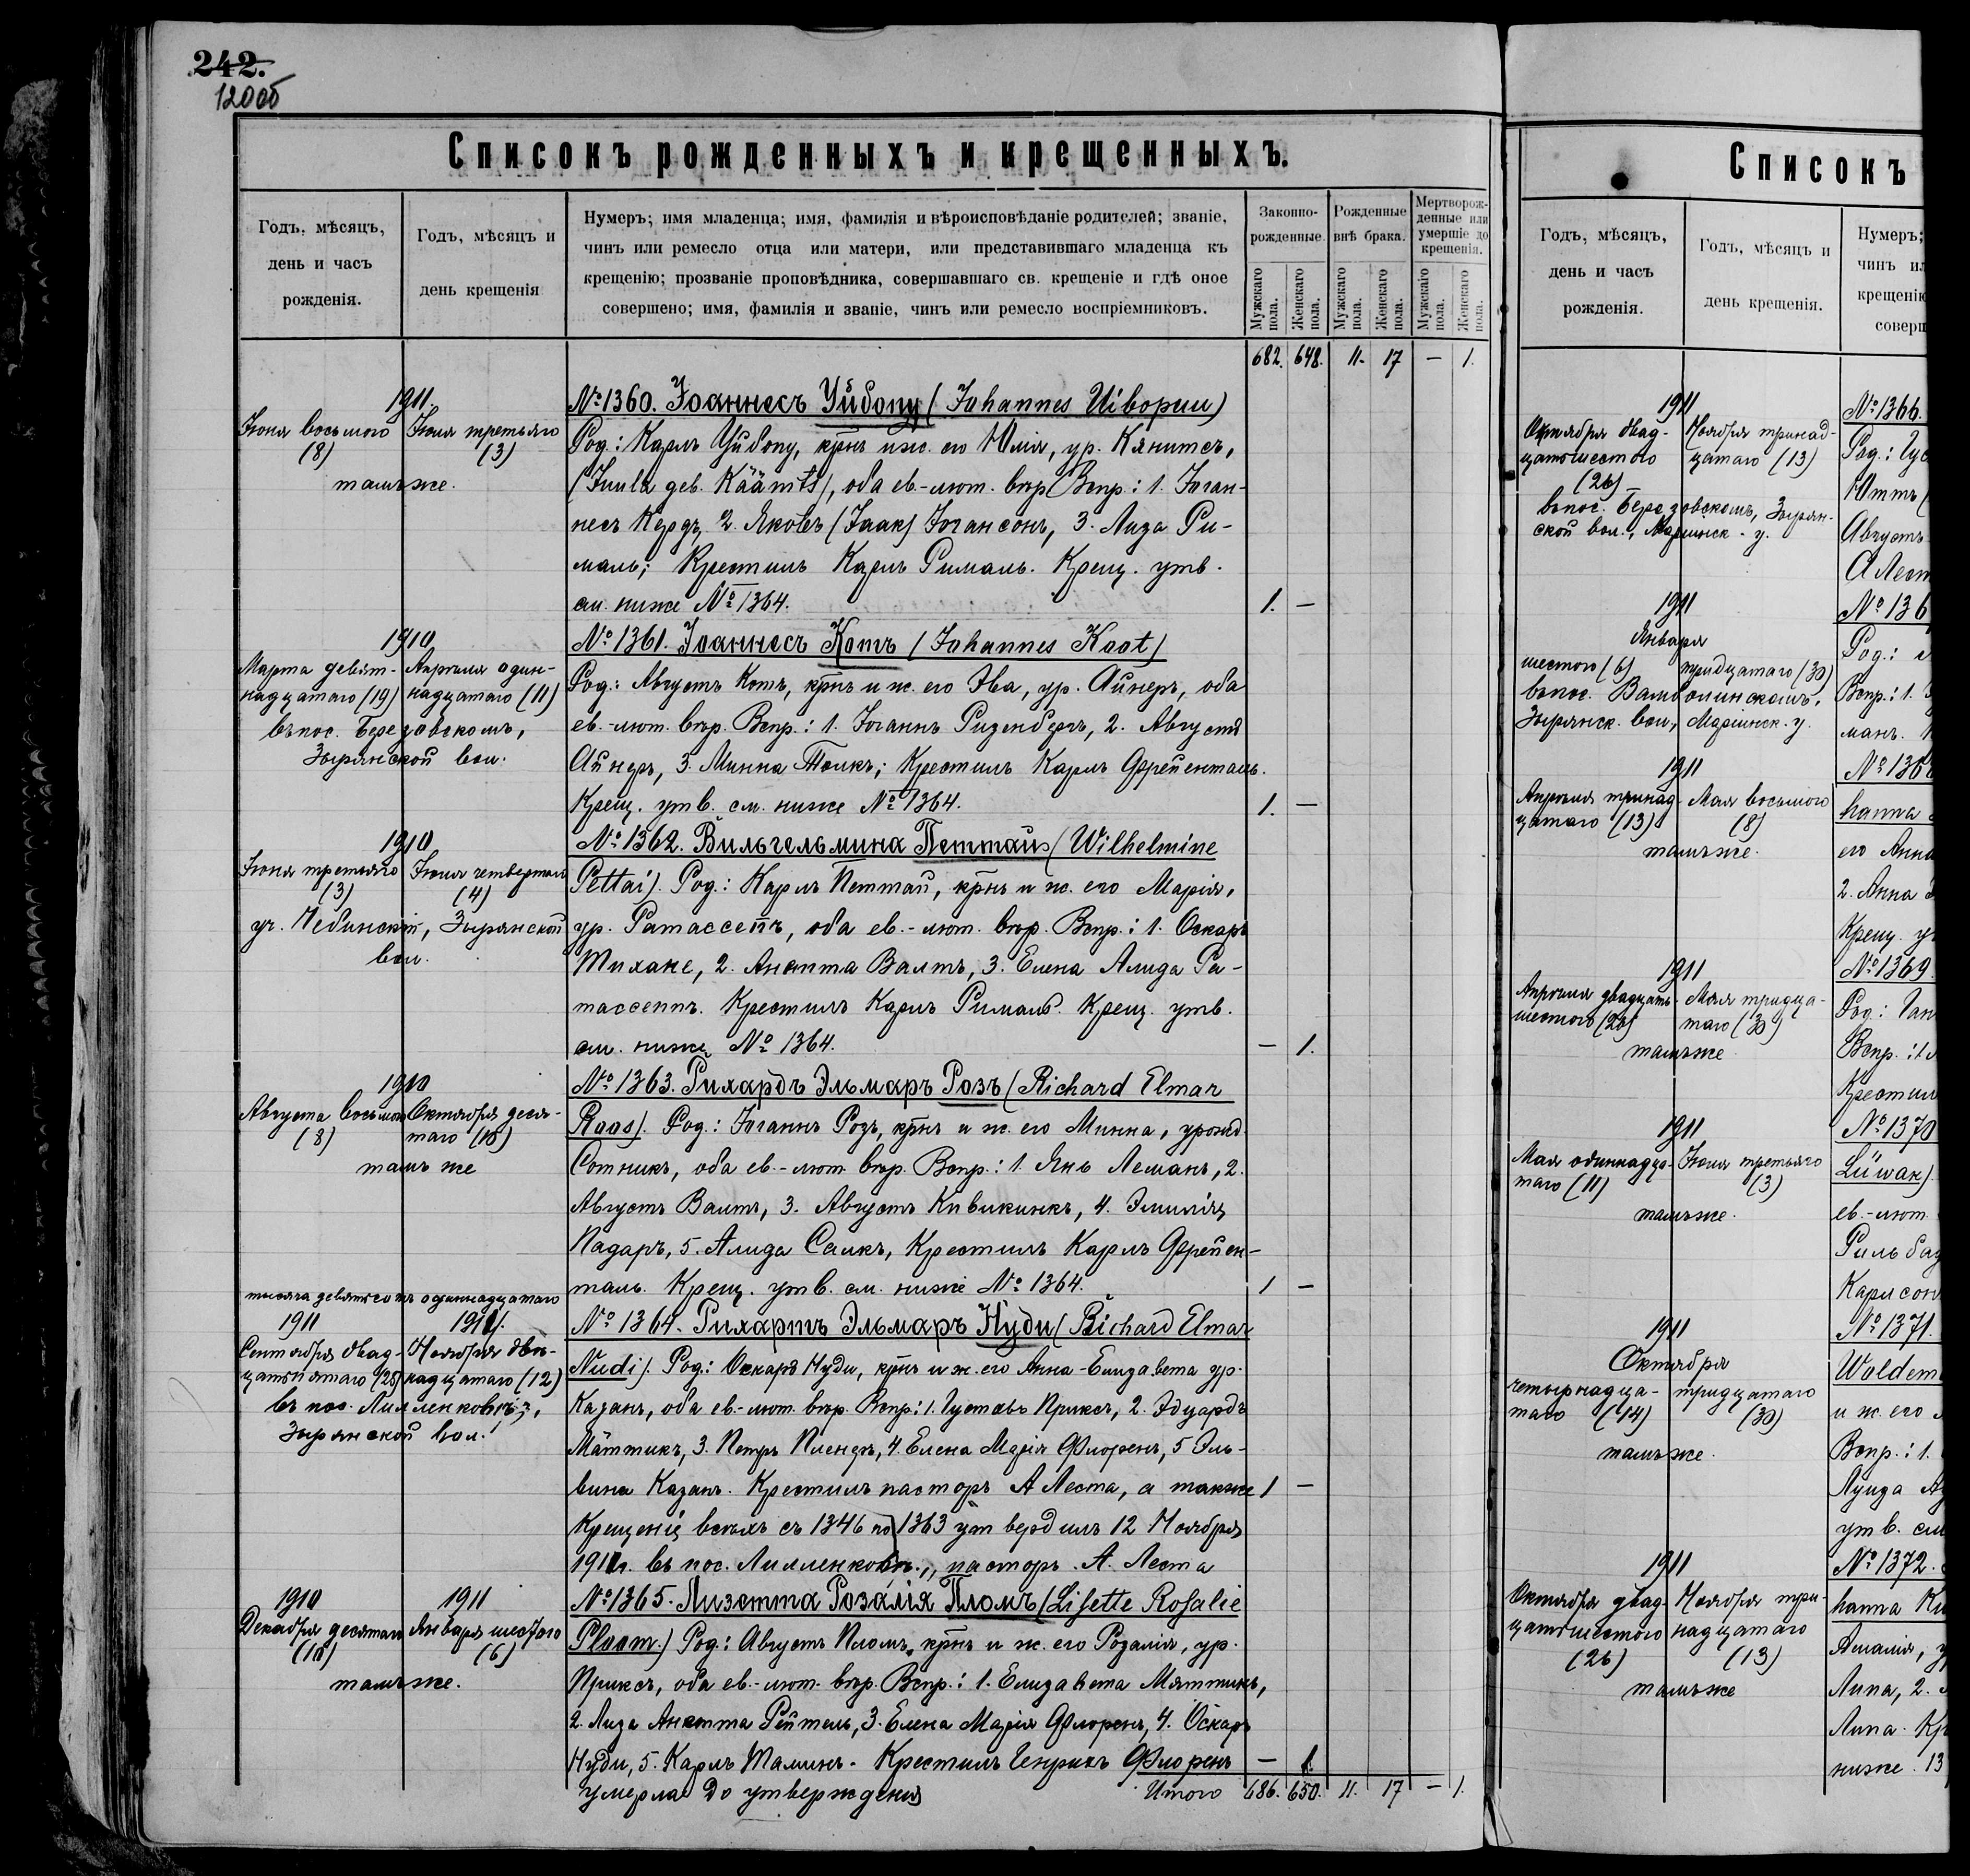 242.
120об
Списокъ рожденныхъ и крещенныхъ.
Годъ, мѣсяцъ,
день и часъ
рожденія.
Годъ, мѣсяцъ и
день крещенія
Нумеръ; имя младенца; имя, фамилія и вѣроисповѣданіе родителей; званіе,
чинъ или ремесло отца или матери, или представившаго младенца къ
крещенію; прозваніе проповѣдника, совершавшаго св. крещеніе и гдѣ оное
совершено; имя, фамилія и званіе, чинъ или ремесло воспріемниковъ.
Законно-
рожденные.
Рожденные
внѣ брака.
Мертворож-
денные или
умершіе до
крещенія.
Мужскаго пола.
Женскаго пола.
Мужскаго пола.
Женскаго пола.
Мужскаго пола.
Женскаго пола.
682. 648. 11. 17 — 1.
1911.
Іюня восьмого
(8)
Іюля третьяго
(3)
тамъ же.
№ 1360. Іоаннесъ Уйбопу (Johannes
Род.: Карлъ Уйбопу, крнъ и ж. его Юлія, ур. Кянитсъ,
(Juula geb. Käämts), оба ев.-лют. вѣр. Вспр.: 1. Іоган-
несъ Кердъ, 2. Яковъ (Jaak) Іогансонъ, 3. Лиза Ри-
маль; Крестилъ Карлъ Рималь. Крещ. утв.
см. ниже № 1364.
1. —
1910
Марта девят-
надцатаго (19)
Апрѣля один-
надцатаго (11)
въ пос. Березовскомъ,
Зырянской вол.
№ 1361. Іоаннесъ Котъ (Johannes Koot)
Род.: Августъ Котъ, крнъ и ж. его Эва, ур. Айнеръ, оба
ев.-лют. вѣр. Вспр.: 1. Іоганнъ Ризенбергъ, 2. Августъ
Айнеръ, 3. Минна Толкъ; Крестилъ Карлъ Фрейенталь.
Крещ. утв. см. ниже № 1364.
1. —
1910
Іюня третьяго
(3)
Іюля четвертаго
(4)
уч. Чебинскій, Зырянской
вол.
№ 1362. Вильгельмина Петтай (Wilhelmine
Pettai). Род.: Карлъ Петтай, крнъ и ж. его Марія,
ур. Ратассеппъ, оба ев.-лют. вѣр. Вспр.: 1. Оскаръ
Михаке, 2. Анетта Валтъ, 3. Елена Алида Ра-
тассеппъ. Крестилъ Карлъ Рималь. Крещ. утв.
см. ниже № 1364.
— 1.
1910
Августа восьмого
(8)
Октября деся-
таго (10)
тамъ же
№ 1363. Рихардъ Эльмаръ Розъ (Richard Elmar
Roos). Род.: Іоганнъ Розъ, крнъ и ж. его Минна, урожд.
Сотникъ, оба ев.-лют. вѣр. Вспр.: 1. Янъ Леманъ, 2.
Августъ Валтъ, 3. Августъ Кивикинкъ, 4. Эмилія
Падаръ, 5. Алида Салкъ, Крестилъ Карлъ Фрейен-
таль. Крещ. утв. см. ниже № 1364.
1 —
тысяча девятьсотъ одиннадцатаго
1911
1911.
Сентября двад-
цатьпятаго (25)
Ноября двѣ-
надцатаго (12)
въ пос. Лилленковкѣ,
Зырянской вол.
№ 1364. Рихартъ Эльмаръ Нуди (Richard Elmar
Nudi). Род.: Оскаръ Нуди, крнъ и ж. его Анна-Елизавета ур.
Казанъ, оба ев.-лют. вѣр. Вспр.: 1. Густавъ Приксъ, 2. Эдуардъ
Мяттикъ, 3. Петръ Плендъ, 4. Елена Марія Флоренъ, 5 Эль-
вина Казанъ. Крестилъ пасторъ А Леста, а также
Крещеніе всѣхъ съ 1346 по 1363 утвердилъ 12 Ноября
1911г. въ пос. Лилленковкѣ., пасторъ А. Леста
1 —
1910
1911
Декабря десятаго
(10)
Января шестого
(6)
тамъ же.
№ 1365. Лизетта Розалія Пломъ (Lisette Rosalie
Ploom.) Род.: Августъ Пломъ, крнъ и ж. его Розалія, ур.
Приксъ, оба ев.-лют. вѣр. Вспр.: 1. Елизавета Мяттикъ,
2. Лиза Анетта Рейтель, 3. Елена Марія Флоренъ, 4. Оскаръ
Нуди, 5. Карлъ Таминъ. Крестилъ Генрихъ Флоренъ
— 1.
Умерла до утвержденія
Итого 686. 650. 11. 17 — 1.
Списокъ
Годъ, мѣсяцъ,
день и часъ
рожденія.
Годъ, мѣсяцъ и
день крещенія.
Нумеръ;
чинъ ил
крещенію
соверш
1911
Октября двад-
цатьшестого
(26)
Ноября тринад-
цатаго (13)
въ пос. Березовскомъ, Зырян-
ской вол., Маріинск. у.
№ 1366.
Род.: Гус
Юттъ (
Августъ
А Лест
1911
Января
шестого (6)
тридцатаго (30)
въ пос. Вамболинскомъ,
Зырянск. вол., Маріинск. у.
№ 136
Род.:
Вспр.: 1.
манъ.
1911
Апрѣля тринад-
цатаго (13)
Мая восьмого
(8)
тамъ же.
№ 136
hanna
его Анна
2. Анна
Крещ. у
1911
Апрѣля двадцать-
шестого (26)
Мая тридца-
таго (30)
тамъ же
№ 1369.
Род.: Ган
Вспр.: 1
Крестил
1911
Мая одиннадца-
таго (11)
Іюля третьяго
(3)
тамъ же.
№ 1370
Liiwak).
ев.-лют.
Рильба
Карлсон
1911
Октября
четырнадца-
таго (14)
тридцатаго
(30)
тамъ же.
№ 1371.
Woldem
и ж. его
Вспр.: 1.
Луиза
утв. см
1911
Октября двад-
цатьшестого
(26)
Ноября три-
надцатаго
(13)
тамъ же
№ 1372.
hanna
Амалія, у
Липа, 2.
Липа. Кр
ниже. 13